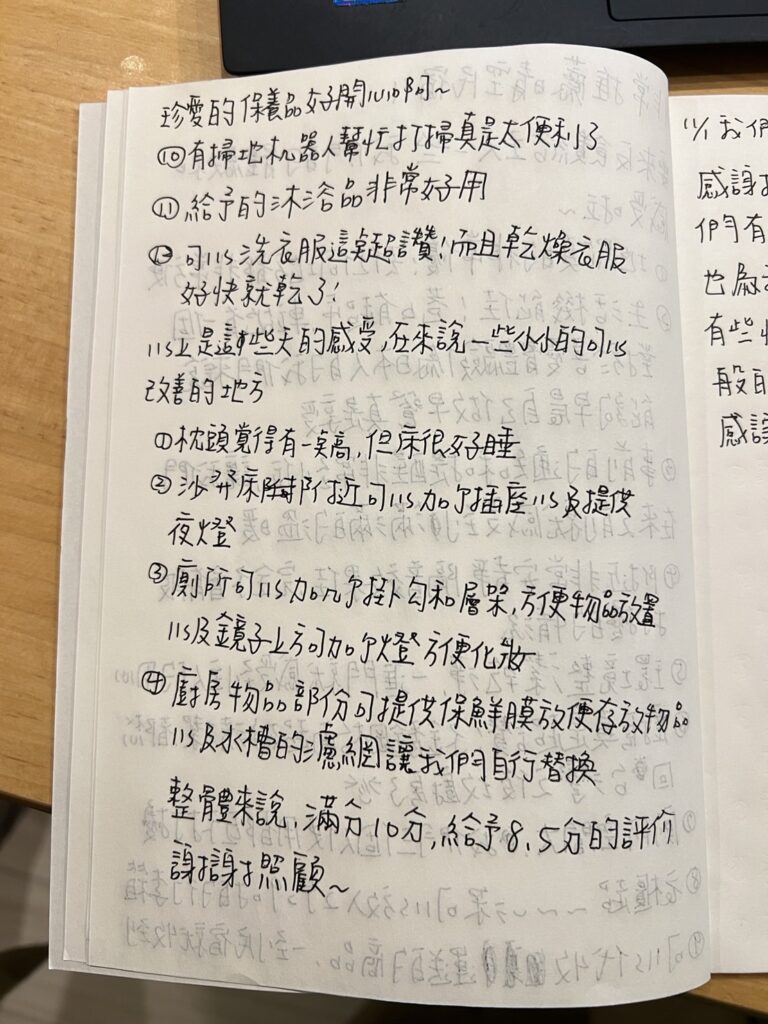 珍愛的保養品好開心呵呵~
⑩有掃地机器人幫忙打掃真是太便利了
⑪給予的沐浴品非常好用
⑫可以洗衣服這點超讚!而且乾燥衣服
好快就乾了!
以上是這些天的感受,在來說一些小小的可以
改善的地方
①枕頭覺得有一點高,但床很好睡
②沙發床附近可以加尔插座以及提供
夜燈
③廁所可以加尔掛勾和層架,方便物品放置
以及鏡子上方可加尔燈方便化妝
④廚房物品部份可提供保鮮膜放便存放物品
以及水槽的濾網讓我們自行替換
整體來說,滿分10分,給予8.5分的評价
謝謝照顧~
11/1 我們
感謝
們有
也
有些
般的
感謝